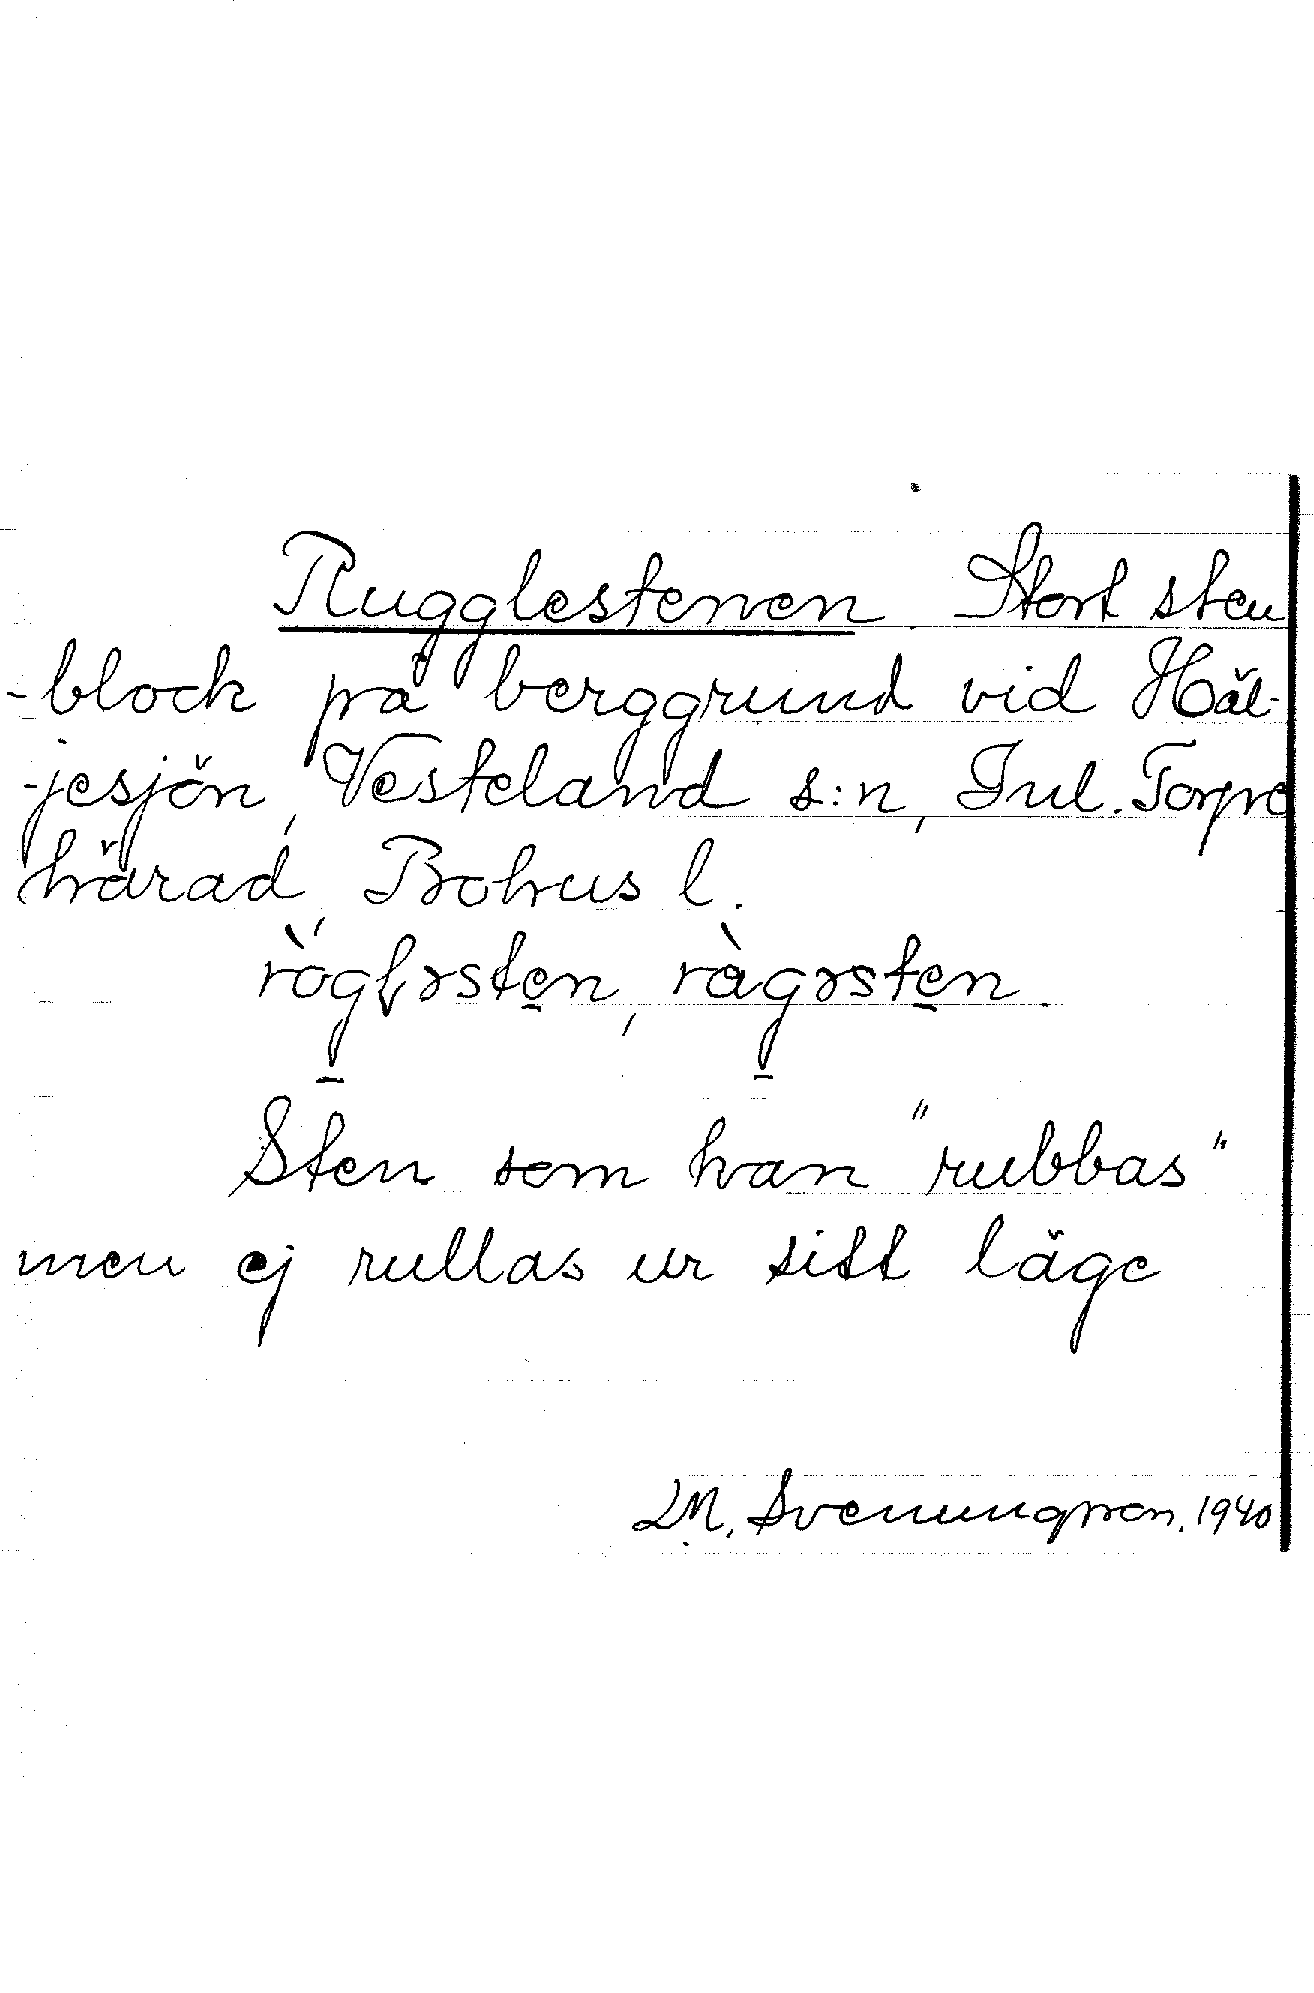 Rugglestenen. Stort sten
-block på berggrund vid Häl-
-jesjön, Vesteland s:n, Inl. Torpe
härad, Bohus l.
rògłəsten, ràgəsten.
Sten som kan "rubbas"
men ej rullas ur sitt läge
M. Svenungsson. 1940